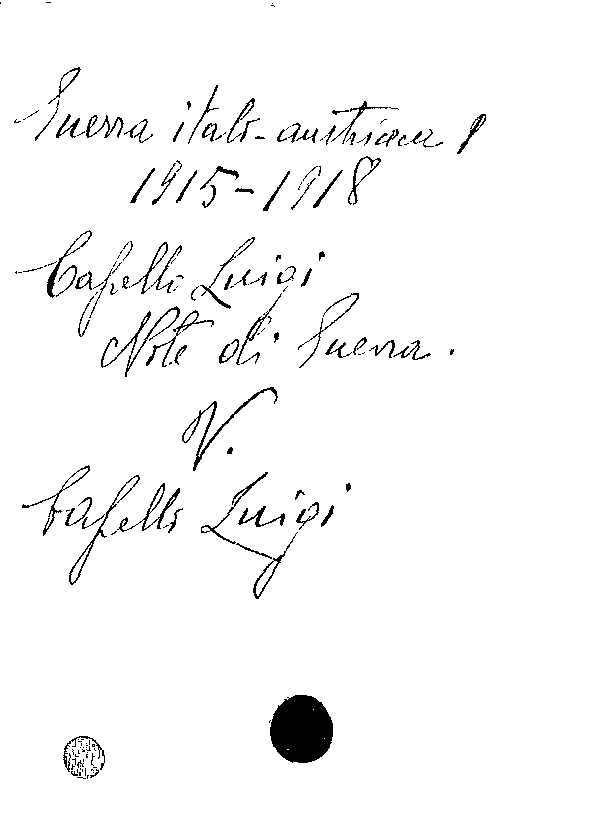 Guerra italo-austriaca
1915-1918
Capello Luigi
Note di Guerra.
V.
Capello Luigi